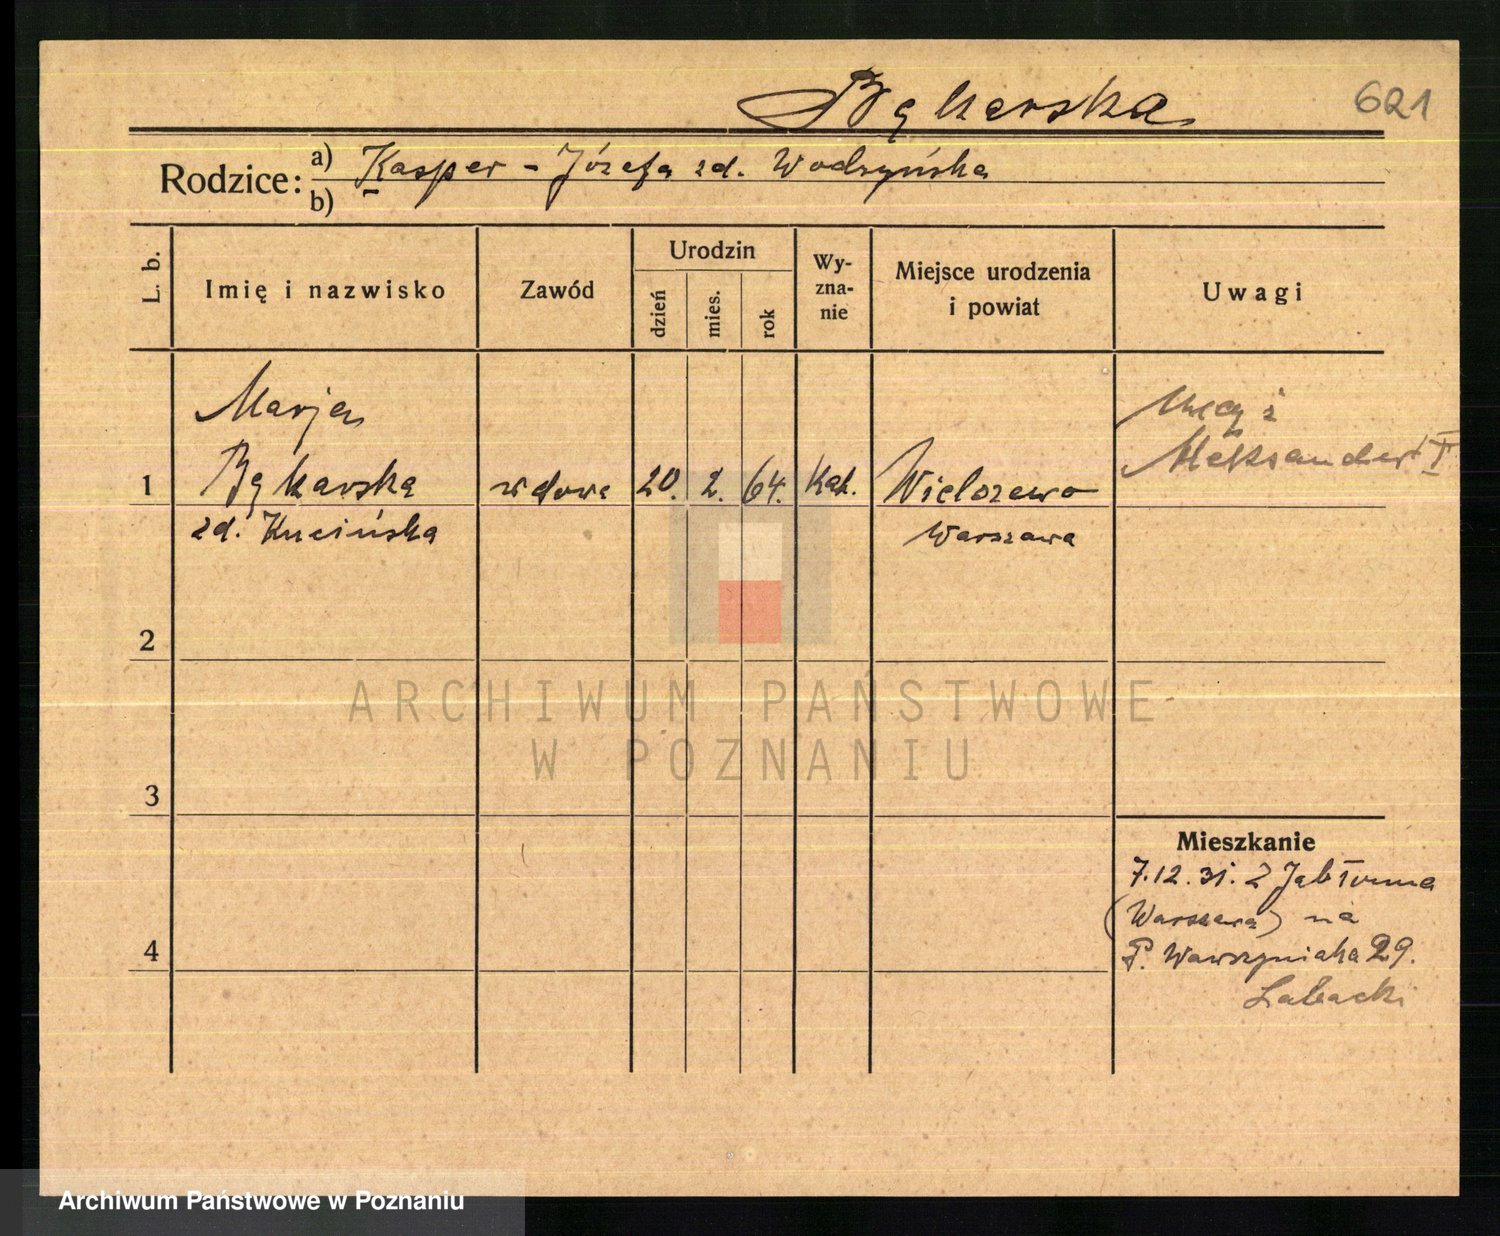 Bąkarska 621
Rodzice: a) Kasper - Józefa zd. Wodzyńska
b) -
L. b. Imię i nazwisko Zawód Urodzin dzień mies. rok Wyznanie Miejsce urodzenia i powiat Uwagi
Marja
Mąż
Aleksander I
1 Bąkarska wdowa 20. 2. 64. Kat. Wielszewo
zd. Kucińska Warszawa
2
ARCHIWUM PAŃSTWOWE
W POZNANIU
3
Mieszkanie
7.12.31. z Jabłonna
(Warszawa) na
P. Wawrzyniaka 29.
4
Labacki
Archiwum Państwowe w Poznaniu